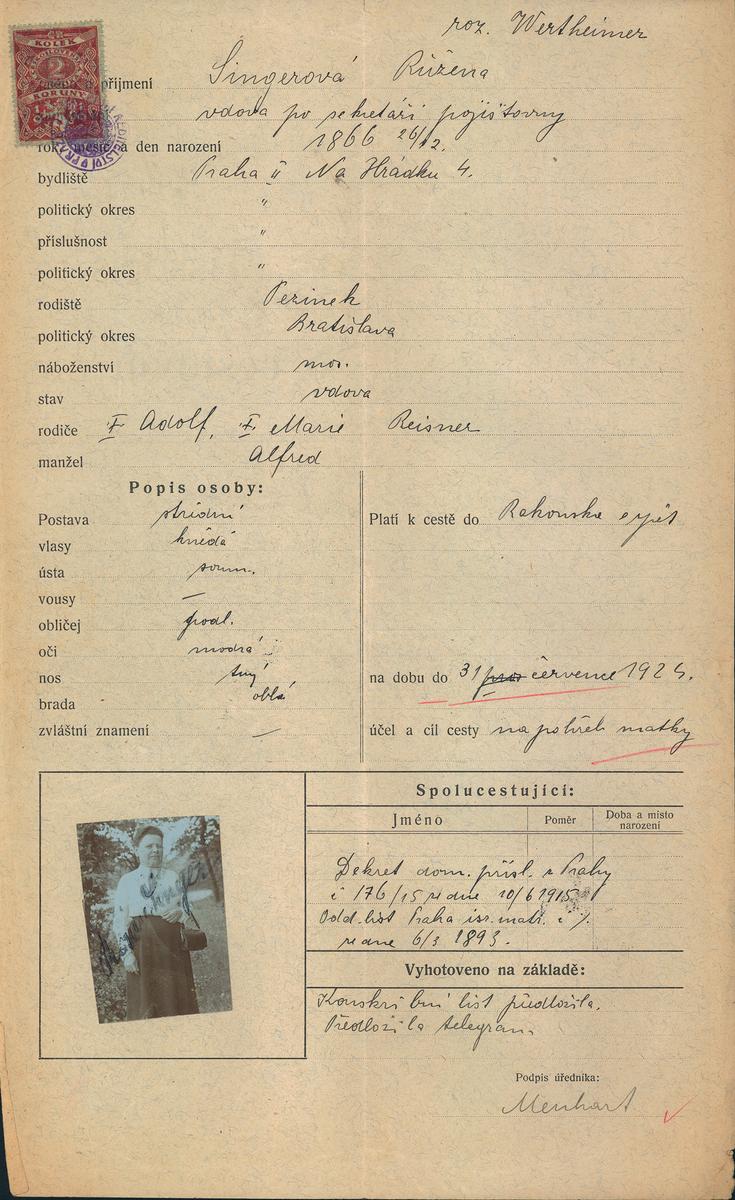 roz. Wertheimer
KOLEK
2
KORUNY
příjmení Singerová Růžena
vdova po sekretáři pojišťovny
rok, měsíc a den narození 1866 26/12.
bydliště Praha II Na Hrádku 4.
politický okres "
příslušnost "
politický okres "
rodiště Pezinek
politický okres Bratislava
náboženství mos.
stav vdova
rodiče Adolf, Marie Reisner
manžel Alfred
Popis osoby:
Postava střední
vlasy hnědá
ústa soum.
vousy —
obličej podl.
oči modrá
nos
brada oblá
zvláštní znamení —
Platí k cestě do Rakouska a zpět
na dobu do 31 července 1924.
účel a cíl cesty na pohřeb matky
Spolucestující:
Jméno Poměr Doba a místo narození
Dekret dom. přísl. z Prahy
č 176/15 ze dne 10/6 1915
Odd. list Praha isr. matr. č
ze dne 6/3 1893.
Vyhotoveno na základě:
Konskribční list předložila.
Předložila telegram
Podpis úředníka:
Menhart